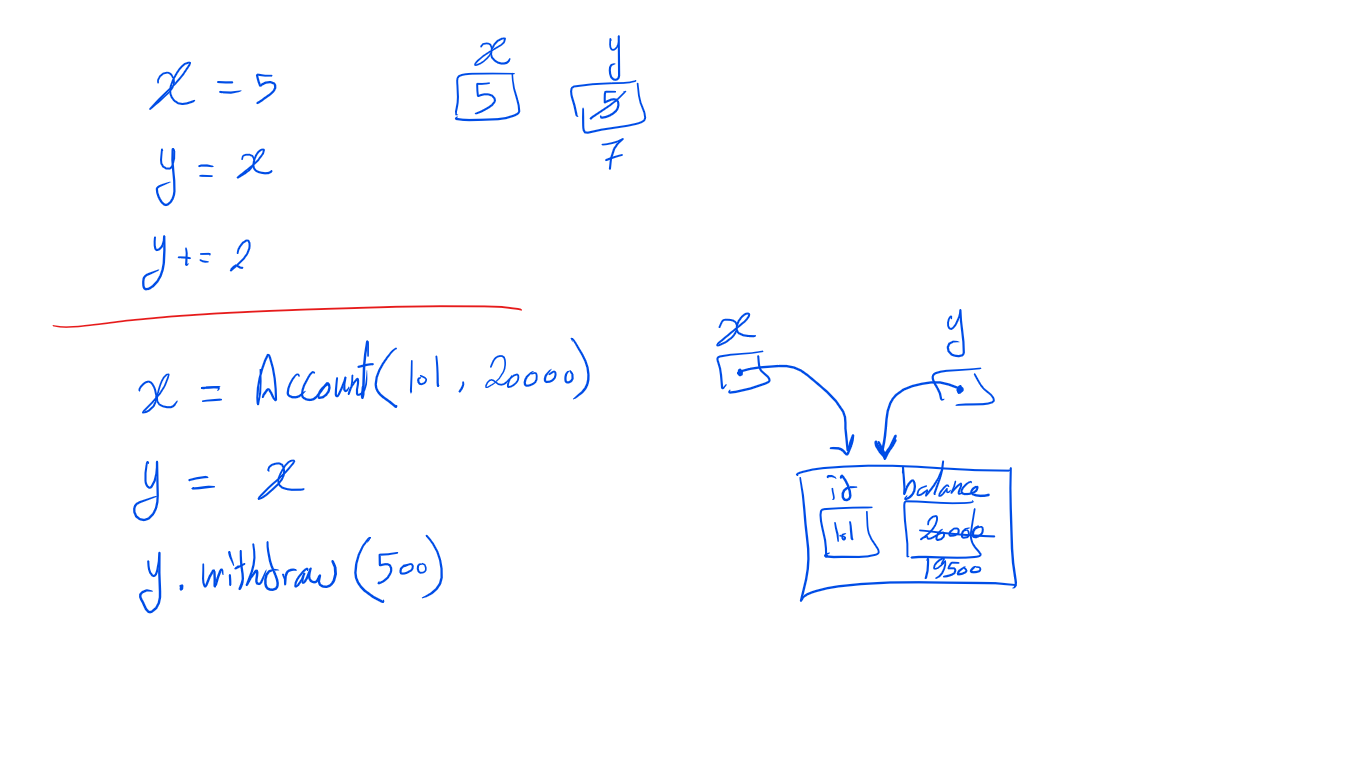 x = 5
y = x
y += 2
x y
5 5
7
x = Account(101, 20000)
y = x
y.withdraw(500)
x y
id balance
101 20000
19500